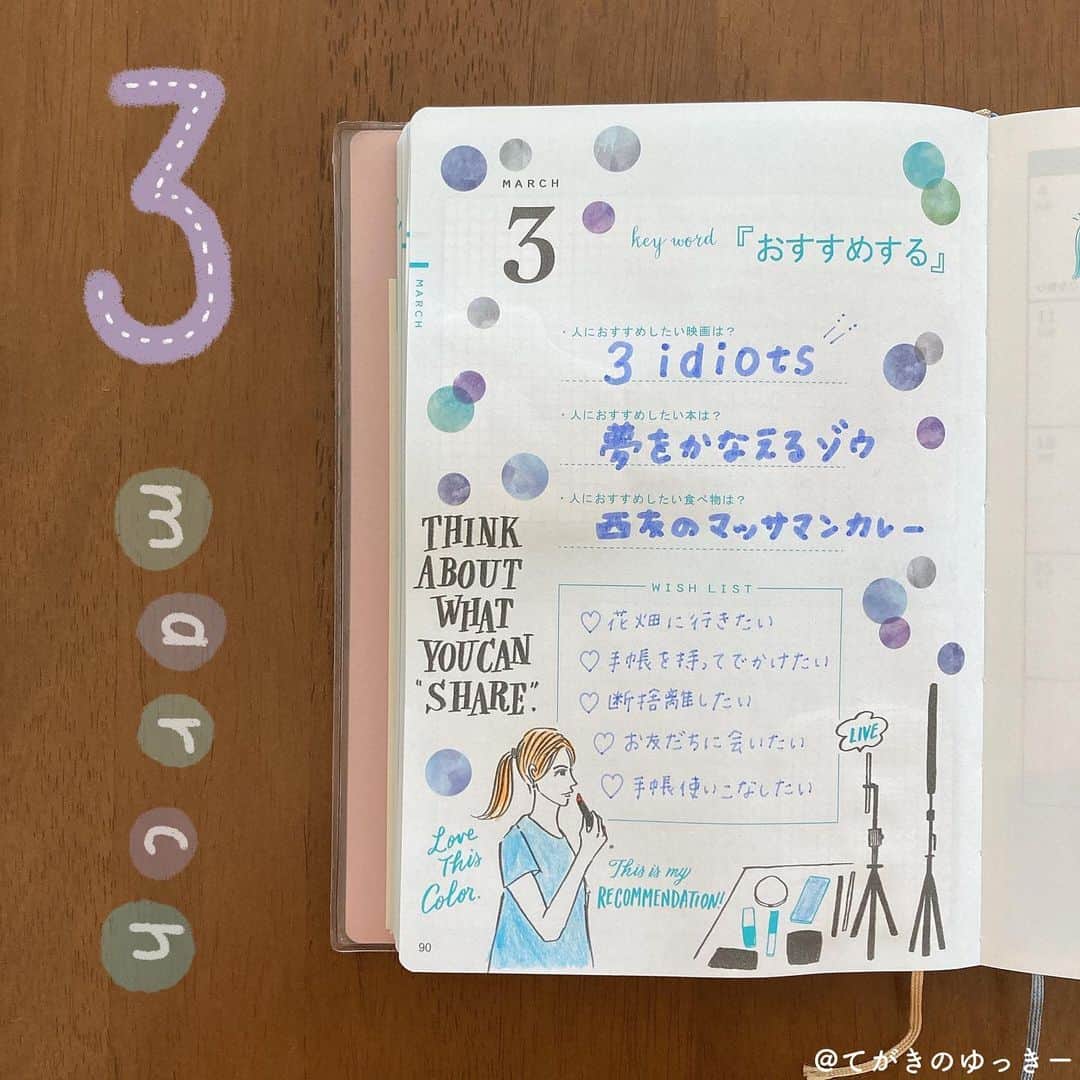 3
march
MARCH
3
key word 『おすすめする』
MARCH
・人におすすめしたい映画は？
3 idiots
・人におすすめしたい本は？
夢をかなえるゾウ
・人におすすめしたい食べ物は？
西友のマッサマンカレー
THINK
ABOUT
WHAT
YOU CAN
"SHARE".
WISH LIST
♡花畑に行きたい
♡手帳を持ってでかけたい
♡断捨離したい
♡お友だちに会いたい
♡手帳使いこなしたい
LIVE
Love
This
Color.
This is my
RECOMMENDATION!
90
@てがきのゆっきー